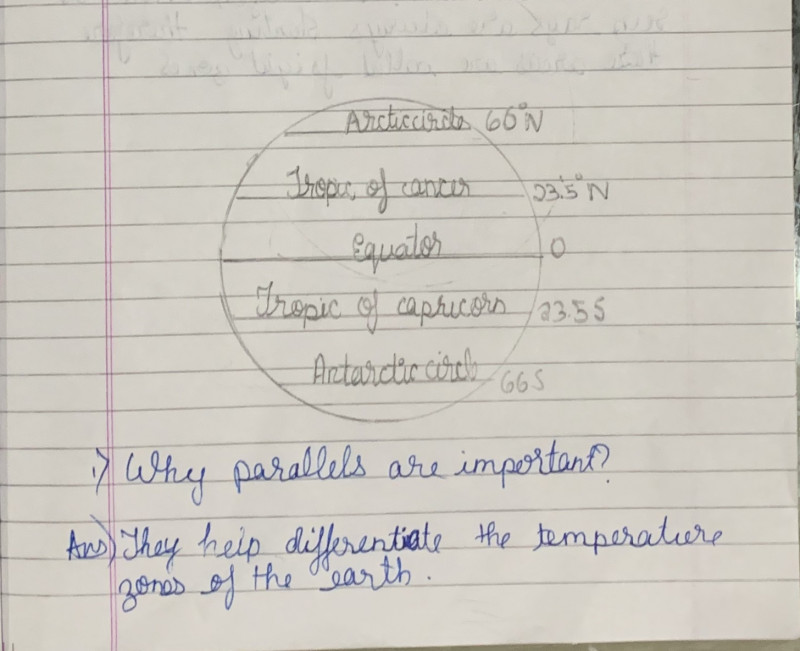 Arctic circle 66°N
Tropic of cancer 23.5°N
Equator 0
Tropic of capricorn 23.5 S
Antarctic circle 66 S
1) Why parallels are important?
Ans) They help differentiate the temperature
zones of the earth.